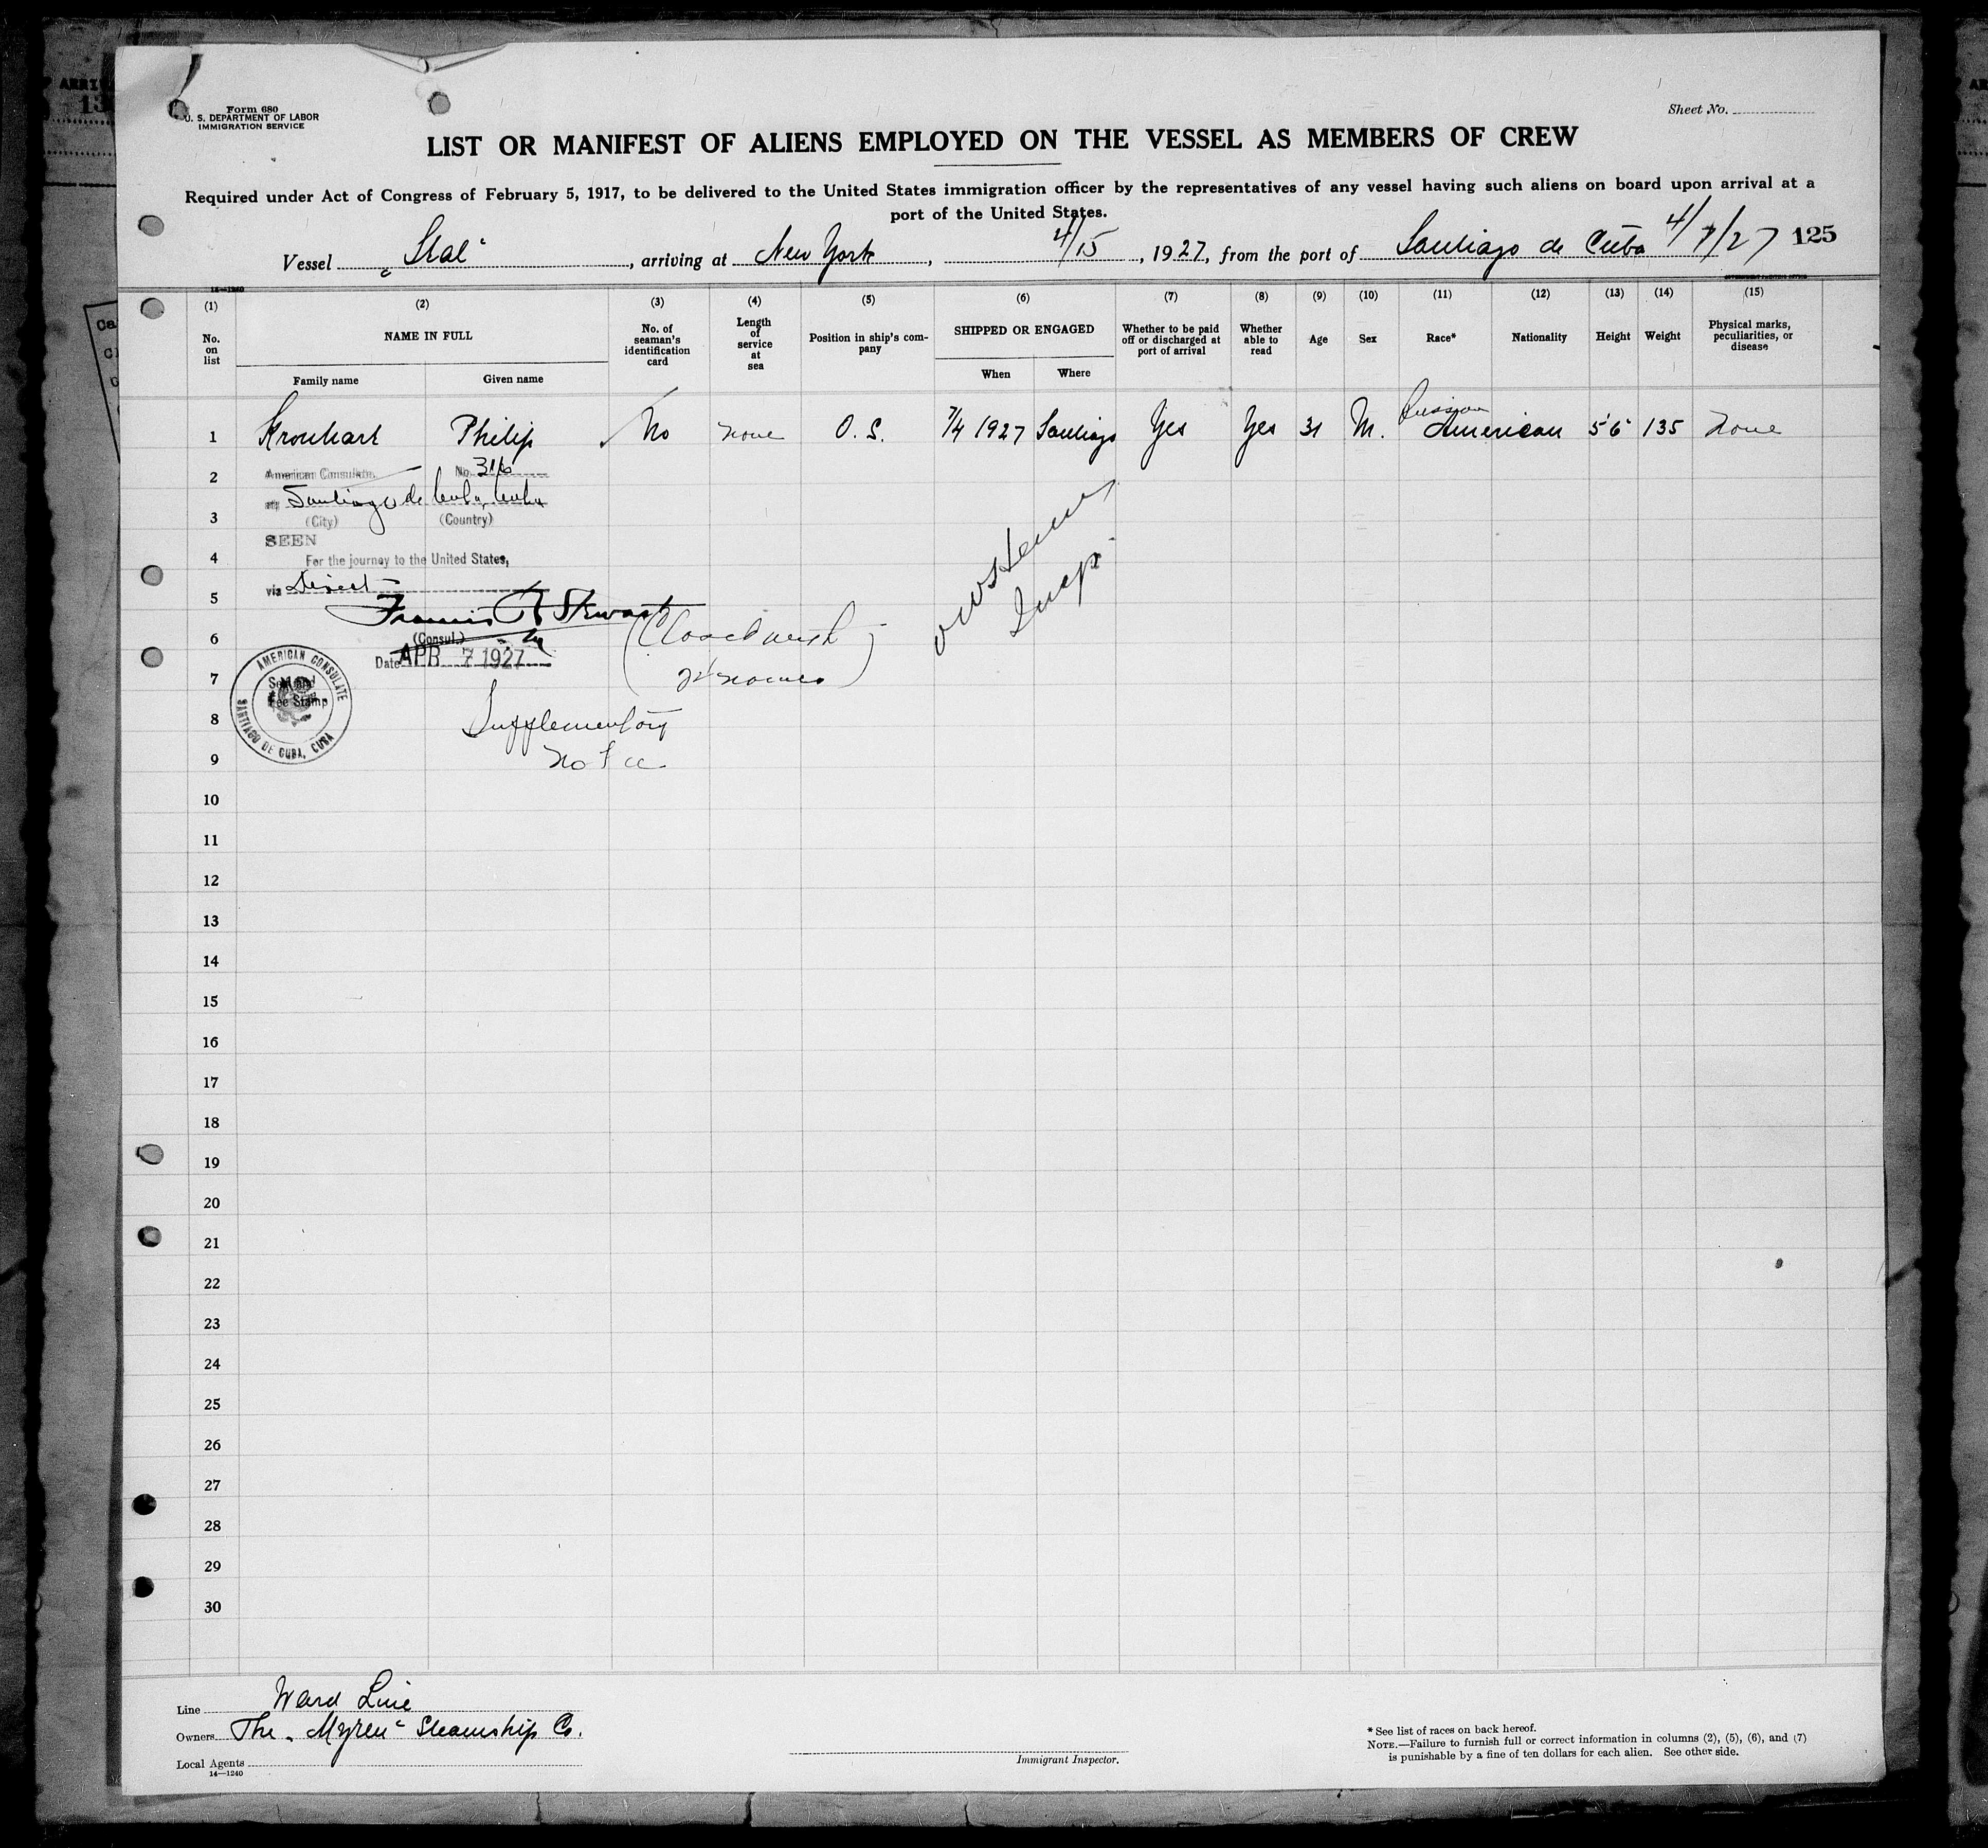 Form 680
U. S. DEPARTMENT OF LABOR
IMMIGRATION SERVICE
Sheet No.
LIST OR MANIFEST OF ALIENS EMPLOYED ON THE VESSEL AS MEMBERS OF CREW
Required under Act of Congress of February 5, 1917, to be delivered to the United States immigration officer by the representatives of any vessel having such aliens on board upon arrival at a
port of the United States.
Vessel "Stal", arriving at New York, 4/15, 1927, from the port of Santiago de Cuba 4/7/27 125
(1) (2) (3) (4) (5) (6) (7) (8) (9) (10) (11) (12) (13) (14) (15)
No. on list
NAME IN FULL
Family name
Given name
No. of seaman's identification card
Length of service at sea
Position in ship's company
SHIPPED OR ENGAGED
When
Where
Whether to be paid off or discharged at port of arrival
Whether able to read
Age
Sex
Race*
Nationality
Height
Weight
Physical marks, peculiarities, or disease
Russian
1 Kronhart Philip No none O. S. 7/4 1927 Santiago Yes Yes 31 M. American 5'6" 135 None
2 American Consulate No. 316
at Santiago de Cuba, Cuba
3 (City) (Country)
SEEN
4 For the journey to the United States,
via Direct
5
Francis R Stewart
6 (Consul.)
Date APR 7 1927
7
AMERICAN CONSULATE
SANTIAGO DE CUBA, CUBA
Seal and
Fee Stamp
8 Supplementary
9 No fee
Insp.
10
11
12
13
14
15
16
17
18
19
20
21
22
23
24
25
26
27
28
29
30
Line Ward Line
Owners The "Myren" Steamship Co.
Local Agents
14—1240
Immigrant Inspector.
* See list of races on back hereof.
NOTE.—Failure to furnish full or correct information in columns (2), (5), (6), and (7)
is punishable by a fine of ten dollars for each alien. See other side.